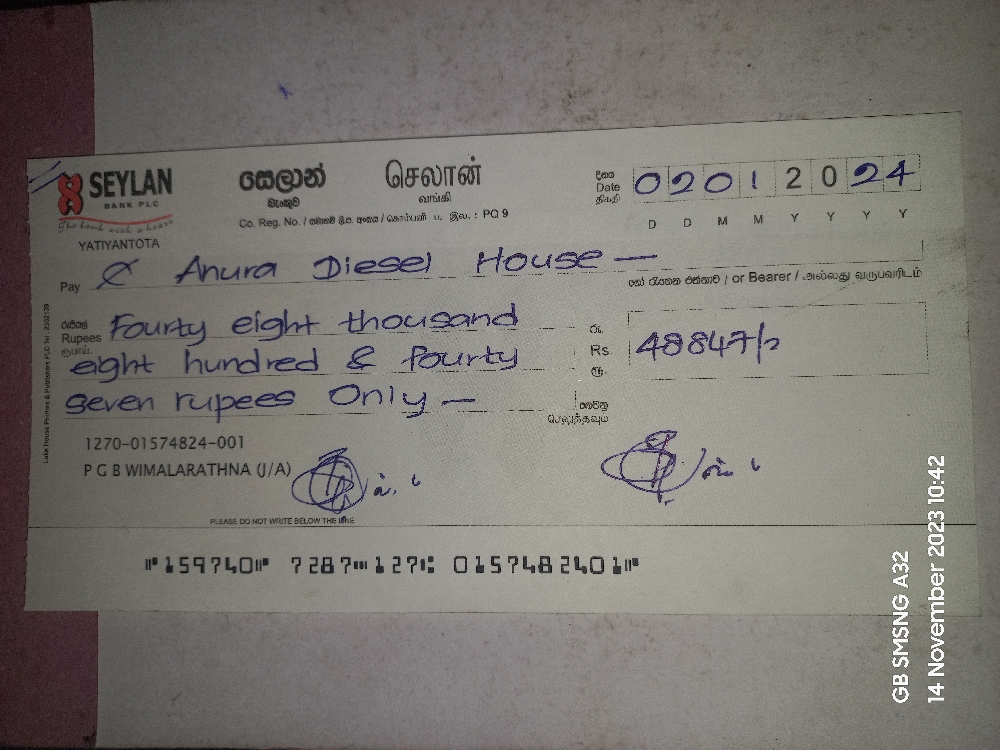 SEYLAN
BANK PLC
The bank with a heart
YATIYANTOTA
සෙලාන්
බැංකුව
செலான்
வங்கி
Co. Reg. No. / සමාගම් ලි.ප. අංකය / கம்பனி ப. இல. : PQ 9
දිනය
Date
திகதி
02 01 2024
D D M M Y Y Y Y
Pay Anura Diesel House —
හෝ රැගෙන එන්නාට / or Bearer / அல்லது வருபவரிடம்
රුපියල්
Rupees
ரூபாய்
Fourty eight thousand
eight hundred & fourty
seven rupees Only —
රු.
Rs.
ரூ.
48847/
ගෙවන්න
செலுத்தவும்
1270-01574824-001
P G B WIMALARATHNA (J/A)
PLEASE DO NOT WRITE BELOW THE LINE
⑈159740⑈ 7287⑉127⑆ 0157482401⑈
Lake House Printers & Publishers PLC Tel : 2332139
GB SMSNG A32
14 November 2023 10:42